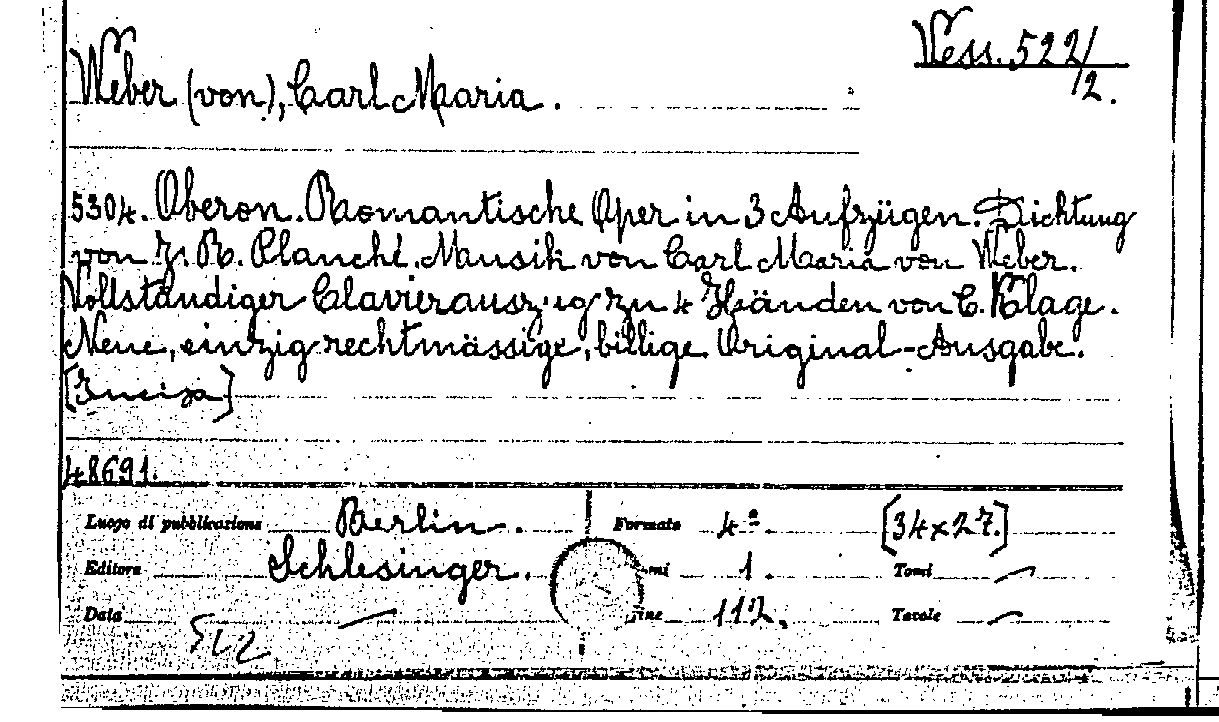 Vess. 522/2.
Weber (von), Carl Maria.
5304. Oberon. Romantische Oper in 3 Aufzügen. Dichtung
von J. R. Planché. Musik von Carl Maria von Weber.
Vollständiger Clavierauszug zu 4 Händen von C. Klage.
Neue, einzig rechtmässige, billige Original-Ausgabe.
48691.
Luogo di pubblicazione Berlin. Formato 4º. [34x27.]
Editore Schlesinger. mi 1. Tomi —
Data — ine 112. Tavole —